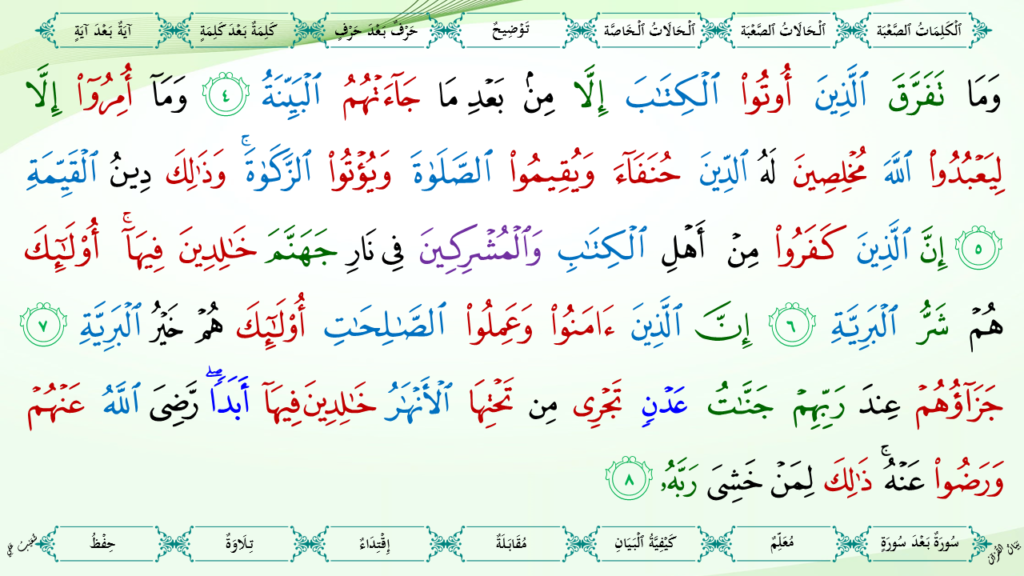 اَلْكَلِمَاتُ الصَّعْبَة اَلْحَالَاتُ الصَّعْبَة اَلْحَالَاتُ الْخَاصَّة تَوْضِيحٌ حَرْفٌ بَعْدَ حَرْفٍ كَلِمَةٌ بَعْدَ كَلِمَةٍ آيَةٌ بَعْدَ آيَةٍ
وَمَا تَفَرَّقَ ٱلَّذِينَ أُوتُواْ ٱلْكِتَٰبَ إِلَّا مِنۢ بَعْدِ مَا جَآءَتْهُمُ ٱلْبَيِّنَةُ ٤ وَمَآ أُمِرُوٓاْ إِلَّا
لِيَعْبُدُواْ ٱللَّهَ مُخْلِصِينَ لَهُ ٱلدِّينَ حُنَفَآءَ وَيُقِيمُواْ ٱلصَّلَوٰةَ وَيُؤْتُواْ ٱلزَّكَوٰةَۚ وَذَٰلِكَ دِينُ ٱلْقَيِّمَةِ
٥ إِنَّ ٱلَّذِينَ كَفَرُواْ مِنْ أَهْلِ ٱلْكِتَٰبِ وَٱلْمُشْرِكِينَ فِى نَارِ جَهَنَّمَ خَٰلِدِينَ فِيهَآۚ أُوْلَٰٓئِكَ
هُمْ شَرُّ ٱلْبَرِيَّةِ ٦ إِنَّ ٱلَّذِينَ ءَامَنُواْ وَعَمِلُواْ ٱلصَّٰلِحَٰتِ أُوْلَٰٓئِكَ هُمْ خَيْرُ ٱلْبَرِيَّةِ ٧
جَزَآؤُهُمْ عِندَ رَبِّهِمْ جَنَّٰتُ عَدْنٍ تَجْرِى مِن تَحْتِهَا ٱلْأَنْهَٰرُ خَٰلِدِينَ فِيهَآ أَبَدًاۖ رَّضِىَ ٱللَّهُ عَنْهُمْ
وَرَضُواْ عَنْهُۚ ذَٰلِكَ لِمَنْ خَشِىَ رَبَّهُۥ ٨
سُورَةٌ بَعْدَ سُورَةٍ مُعَلِّمٌ كَيْفِيَّةُ الْبَيَانِ مُقَابَلَةٌ إِقْتِدَاءٌ تِلَاوَةٌ حِفْظٌ